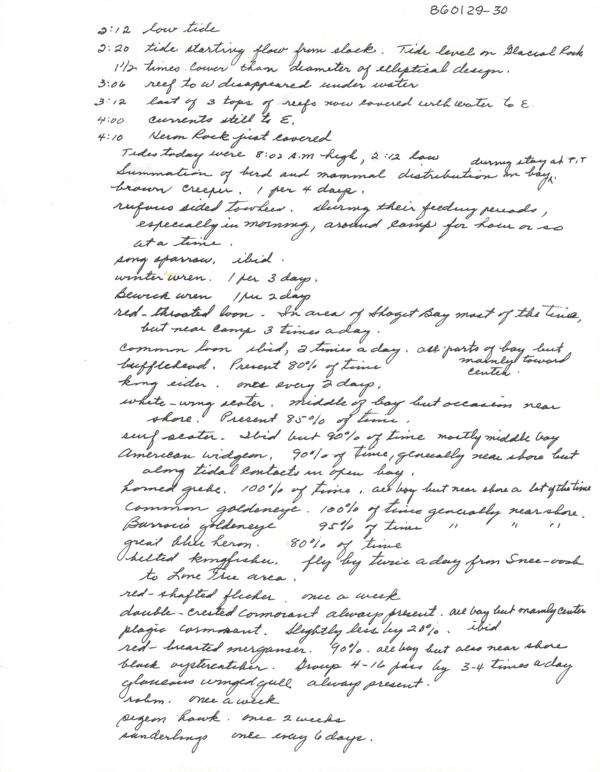 860129-30
2:12 low tide
2:20 tide starting flow from slack. Tide level on Glacial Rock
1 1/2 times lower than diameter of elliptical design.
3:06 reef to W disappeared under water
3:12 last of 3 tops of reefs now covered with water to E.
4:00 currents still to E.
4:10 Heron Rock just covered
Tides today were 8:02 A.M high, 2:12 low
during stay at T.T
Summation of bird and mammal distribution in bay.
brown creeper. 1 per 4 days.
rufous sided towhee. During their feeding periods,
especially in morning, around camp for hour or so
at a time.
song sparrow. ibid.
winter wren. 1 per 3 days.
Bewick wren 1 per 2 days
red-throated loon. In area of Skagit Bay most of the time,
but near camp 3 times a day.
common loon ibid, 2 times a day. all parts of bay but
mainly toward
center.
bufflehead. Present 80% of time
king eider. once every 2 days.
white-wing scoter. middle of bay but occasion near
shore. Present 85% of time.
surf scoter. Ibid but 90% of time mostly middle bay
American widgeon. 90% of time, generally near shore but
along tidal contacts in open bay.
horned grebe. 100% of time. all bay but near shore a lot of the time
Common goldeneye. 100% of time generally near shore.
Barrow's goldeneye 95% of time " " "
great blue heron. 80% of time
belted kingfisher. fly by twice a day from Snee-oosh
to Lone Tree area.
red-shafted flicker. once a week
double-crested cormorant always present. all bay but mainly center
plagic cormorant. Slightly less by 20%. ibid
red-brearted merganser. 90%. all bay but also near shore
black oystercatcher. Group 4-16 pass by 3-4 times a day
glaucous winged gull always present.
robin. once a week
pigeon hawk. once 2 weeks
sanderlings once every 6 days.